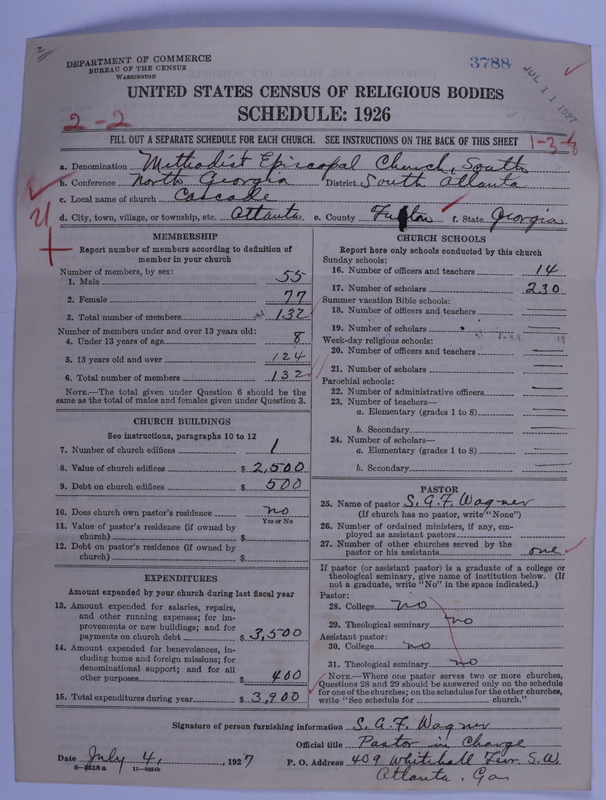 DEPARTMENT OF COMMERCE
BUREAU OF THE CENSUS
WASHINGTON
3788
JUL 11 1927
UNITED STATES CENSUS OF RELIGIOUS BODIES
SCHEDULE: 1926
2-2
FILL OUT A SEPARATE SCHEDULE FOR EACH CHURCH. SEE INSTRUCTIONS ON THE BACK OF THIS SHEET
1-3-8
a. Denomination Methodist Episcopal Church, South
b. Conference North Georgia District South Atlanta
c. Local name of church Cascade
d. City, town, village, or township, etc. Atlanta. e. County Fulton f. State Georgia
MEMBERSHIP
Report number of members according to definition of member in your church
Number of members, by sex:
1. Male 55
2. Female 77
3. Total number of members 132
Number of members under and over 13 years old:
4. Under 13 years of age 8
5. 13 years old and over 124
6. Total number of members 132
NOTE.—The total given under Question 6 should be the
same as the total of males and females given under Question 3.
CHURCH BUILDINGS
See instructions, paragraphs 10 to 12
7. Number of church edifices 1
8. Value of church edifices $ 2,500
9. Debt on church edifices $ 500
10. Does church own pastor's residence? no
Yes or No
11. Value of pastor's residence (if owned by
church) $
12. Debt on pastor's residence (if owned by
church) $
EXPENDITURES
Amount expended by your church during last fiscal year
13. Amount expended for salaries, repairs,
and other running expenses; for im-
provements or new buildings; and for
payments on church debt $ 3,500
14. Amount expended for benevolences, in-
cluding home and foreign missions; for
denominational support; and for all
other purposes $ 400
15. Total expenditures during year $ 3,900
CHURCH SCHOOLS
Report here only schools conducted by this church
Sunday schools:
16. Number of officers and teachers 14
17. Number of scholars 230
Summer vacation Bible schools:
18. Number of officers and teachers
19. Number of scholars
Week-day religious schools:
20. Number of officers and teachers
21. Number of scholars
Parochial schools:
22. Number of administrative officers
23. Number of teachers—
a. Elementary (grades 1 to 8)
b. Secondary
24. Number of scholars—
a. Elementary (grades 1 to 8)
b. Secondary
PASTOR
25. Name of pastor S. A. F. Wagner
(If church has no pastor, write "None")
26. Number of ordained ministers, if any, em-
ployed as assistant pastors
27. Number of other churches served by the
pastor or his assistants one
If pastor (or assistant pastor) is a graduate of a college or
theological seminary, give name of institution below. (If
not a graduate, write "No" in the space indicated.)
Pastor:
28. College no
29. Theological seminary no
Assistant pastor:
30. College no
31. Theological seminary no
NOTE.—Where one pastor serves two or more churches,
Questions 28 and 29 should be answered only on the schedule
for one of the churches; on the schedules for the other churches,
write "See schedule for church."
Signature of person furnishing information S. A. F. Wagner
Official title Pastor in Charge
Date July 4, 1927 P. O. Address 409 Whitehall Terr. S.W.
Atlanta. Ga.
8-5518a